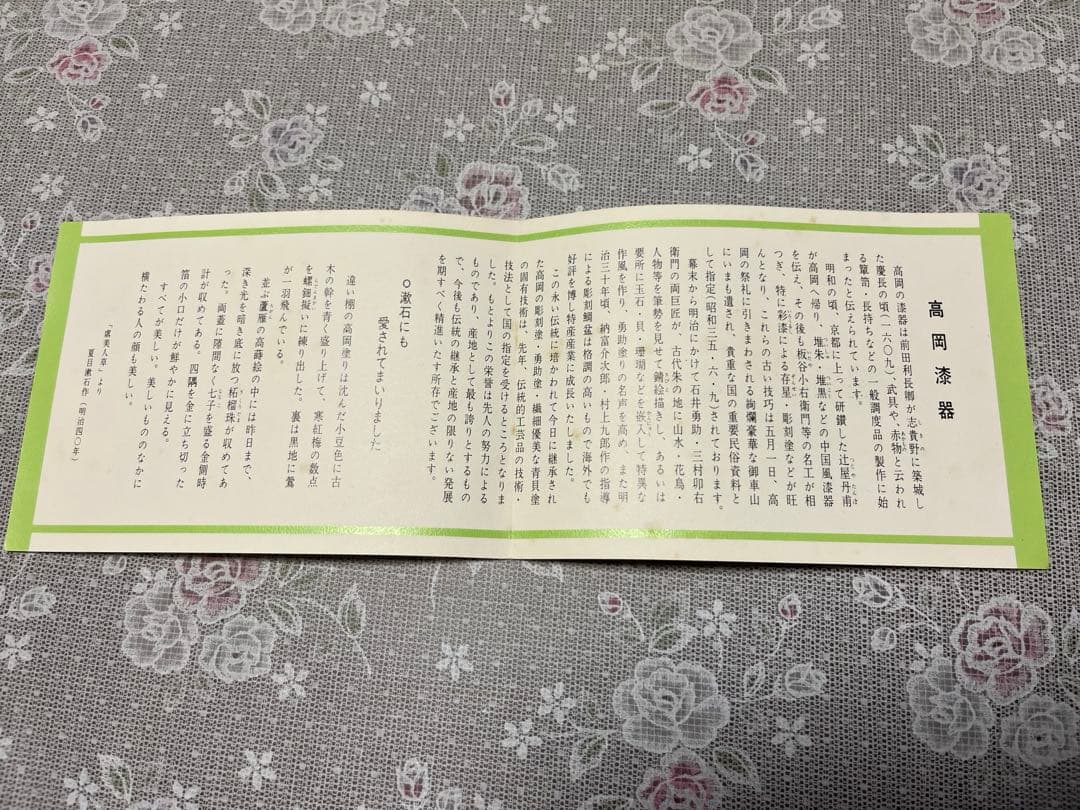 高岡漆器
高岡の漆器は前田利長卿が志貴野に築城し
た慶長の頃(一六〇九)武具や、赤物と云われ
る簞笥・長持ちなどの一般調度品の製作に始
まったと伝えられています。
明和の頃、京都に上って研鑽した辻屋丹甫
が高岡へ帰り、堆朱・堆黒などの中国風漆器
を伝え、その後も板谷小右衛門等の名工が相
つぎ、特に彩漆による存星・彫刻塗などが旺
んとなり、これらの古い技巧は五月一日、高
岡の祭礼に引きまわされる絢爛豪華な御車山
にいまも遺され、貴重な国の重要民俗資料と
して指定(昭和三五・六・九)されております。
幕末から明治にかけて石井勇助・三村卯右
衛門の両巨匠が、古代朱の地に山水・花鳥・
人物等を筆勢を見せて錆絵描きし、あるいは
要所に玉石・貝・珊瑚などを嵌入して特異な
作風を作り、勇助塗りの名声を高め、また明
治三十年頃、納富介次郎・村上九郎作の指導
による彫刻鯛盆は格調の高いもので海外でも
好評を博し特産産業に成長いたしました。
この永い伝統に培かわれて今日に継承され
た高岡の彫刻塗・勇助塗・繊細優美な青貝塗
の固有技術は、先年、伝統的工芸品の技術・
技法として国の指定を受けるところとなりま
した。もとよりこの栄誉は先人の努力による
ものであり、産地として最も誇りとするもの
で、今後も伝統の継承と産地の限りない発展
を期すべく精進いたす所存でございます。
○漱石にも
愛されてまいりました
違い棚の高岡塗りは沈んだ小豆色に古
木の幹を青く盛り上げて、寒紅梅の数点
を螺鈿擬いに練り出した。裏は黒地に鶯
が一羽飛んでいる。
並ぶ蘆雁の高蒔絵の中には昨日まで、
深き光を暗き底に放つ柘榴珠が収めてあ
った。両蓋に隙間なく七子を盛る金側時
計が収めてある。四隅を金に立ち切った
箔の小口だけが鮮やかに見える。
すべてが美しい。美しいもののなかに
横たわる人の顔も美しい。
「虞美人草」より
夏目漱石作(明治四〇年)